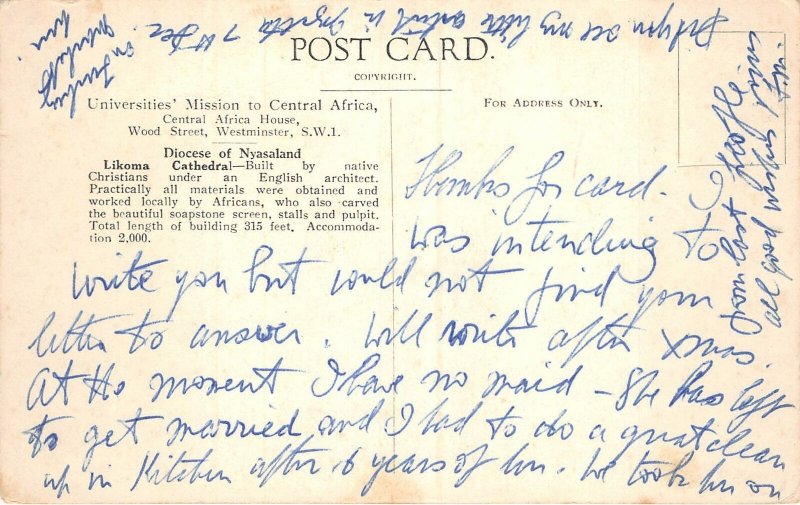 POST CARD.
COPYRIGHT.
Universities' Mission to Central Africa,
Central Africa House,
Wood Street, Westminster, S.W.1.
Diocese of Nyasaland
Likoma Cathedral—Built by native
Christians under an English architect.
Practically all materials were obtained and
worked locally by Africans, who also carved
the beautiful soapstone screen, stalls and pulpit.
Total length of building 315 feet. Accommoda-
tion 2,000.
FOR ADDRESS ONLY.
Thanks for card.
Was intending to
write you but could not find your
letter to answer. Will write after xmas.
At the moment I have no maid - She has left
to get married and I had to do a great clean
up in Kitchen after 6 years of her. We took her on
on Sunday
her
Did you see my little article in 7th Dec.
all good wishes